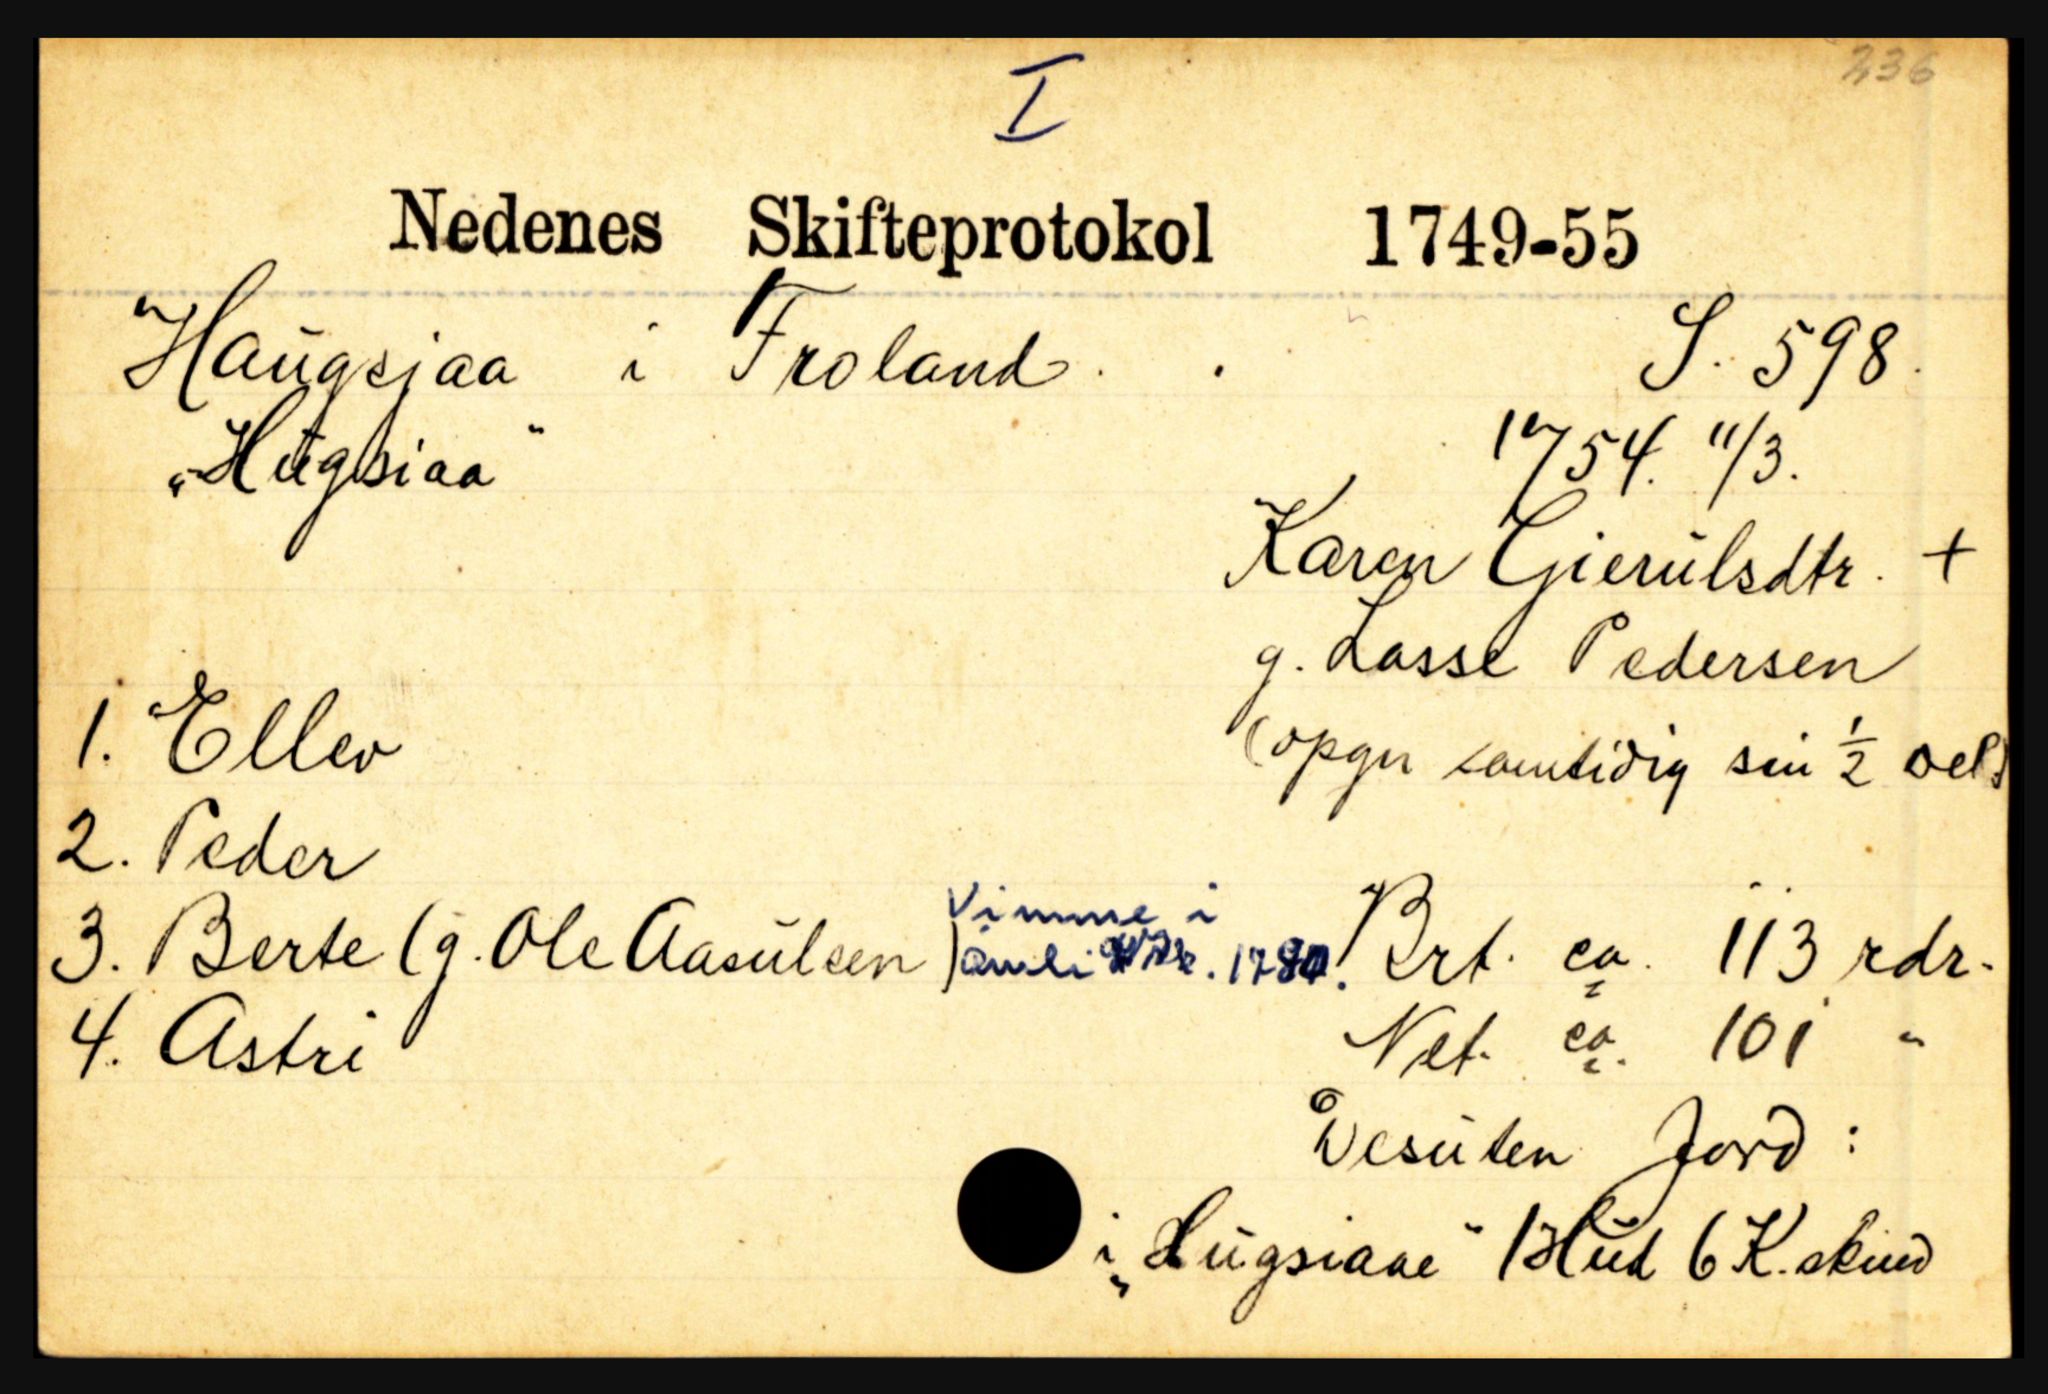 236
I
Nedenes Skifteprotokol 1749-55
Haugsjaa i Froland. S. 598.
„Hugsiaa" 1754. 11/3.
Karen Gierulsdtr. +
g. Lasse Pedersen
(opgir samtidig sin 1/2 del)
1. Ellev
2. Peder
3. Berte (g. Ole Aasulsen) Vimme i Åmli
4. Astri
Brt. ca. 113 rdr.
Net. ca. 101 "
Desuten Jord:
i „Hugsiaae" 1 Hud 6 K.skind